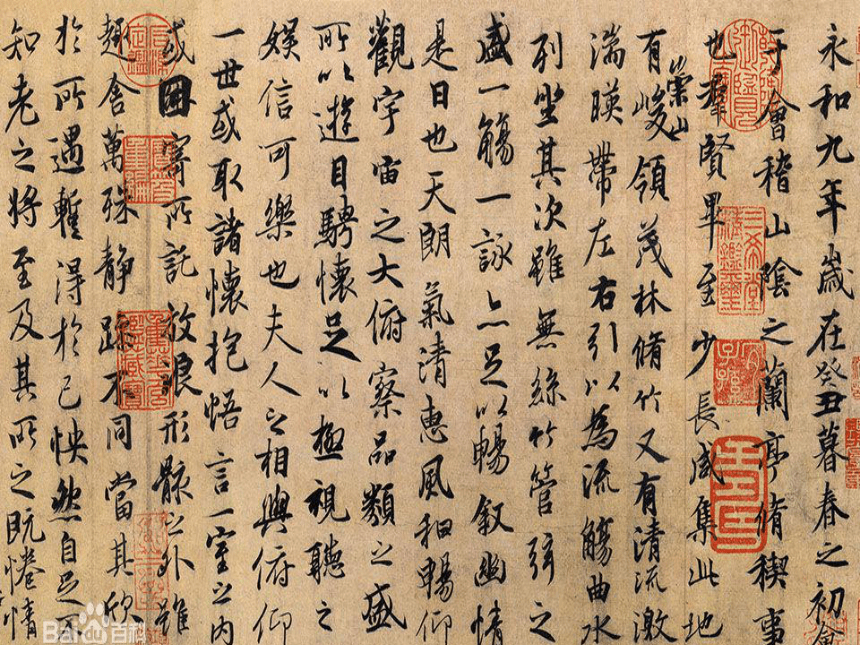 永和九年歲在癸丑暮春之初會
于會稽山陰之蘭亭脩稧事
也群賢畢至少長咸集此地
有崇山峻領茂林脩竹又有清流激
湍暎帶左右引以為流觴曲水
列坐其次雖無絲竹管弦之
盛一觴一詠亦足以暢叙幽情
是日也天朗氣清惠風和暢仰
觀宇宙之大俯察品類之盛
所以遊目騁懷足以極視聽之
娛信可樂也夫人之相與俯仰
一世或取諸懷抱悟言一室之內
或因寄所託放浪形骸之外雖
趣舍萬殊靜躁不同當其欣
於所遇暫得於己怏然自足不
知老之將至及其所之既惓情
三希堂精鑑璽
宜子孫
Baidu百科